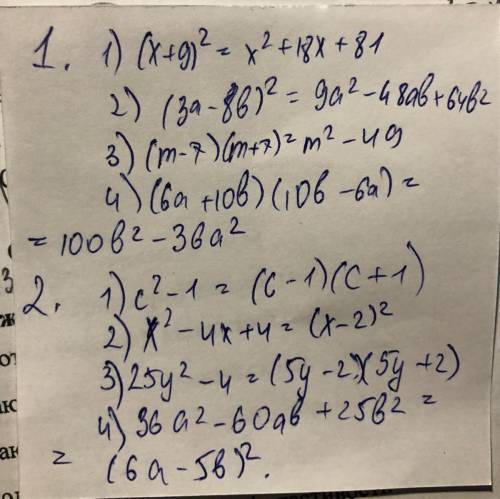 1. 1) (x+9)² = x²+18x+81
2) (3a-8в)² = 9a²-48aв+64в²
3) (m-7)(m+7)=m²-49
4) (6a+10в)(10в-6a)=
=100в²-36a²
2. 1) c²-1 = (c-1)(c+1)
2) x²-4x+4=(x-2)²
3) 25y²-4=(5y-2)(5y+2)
4) 36a²-60aв+25в²=
= (6a-5в)².